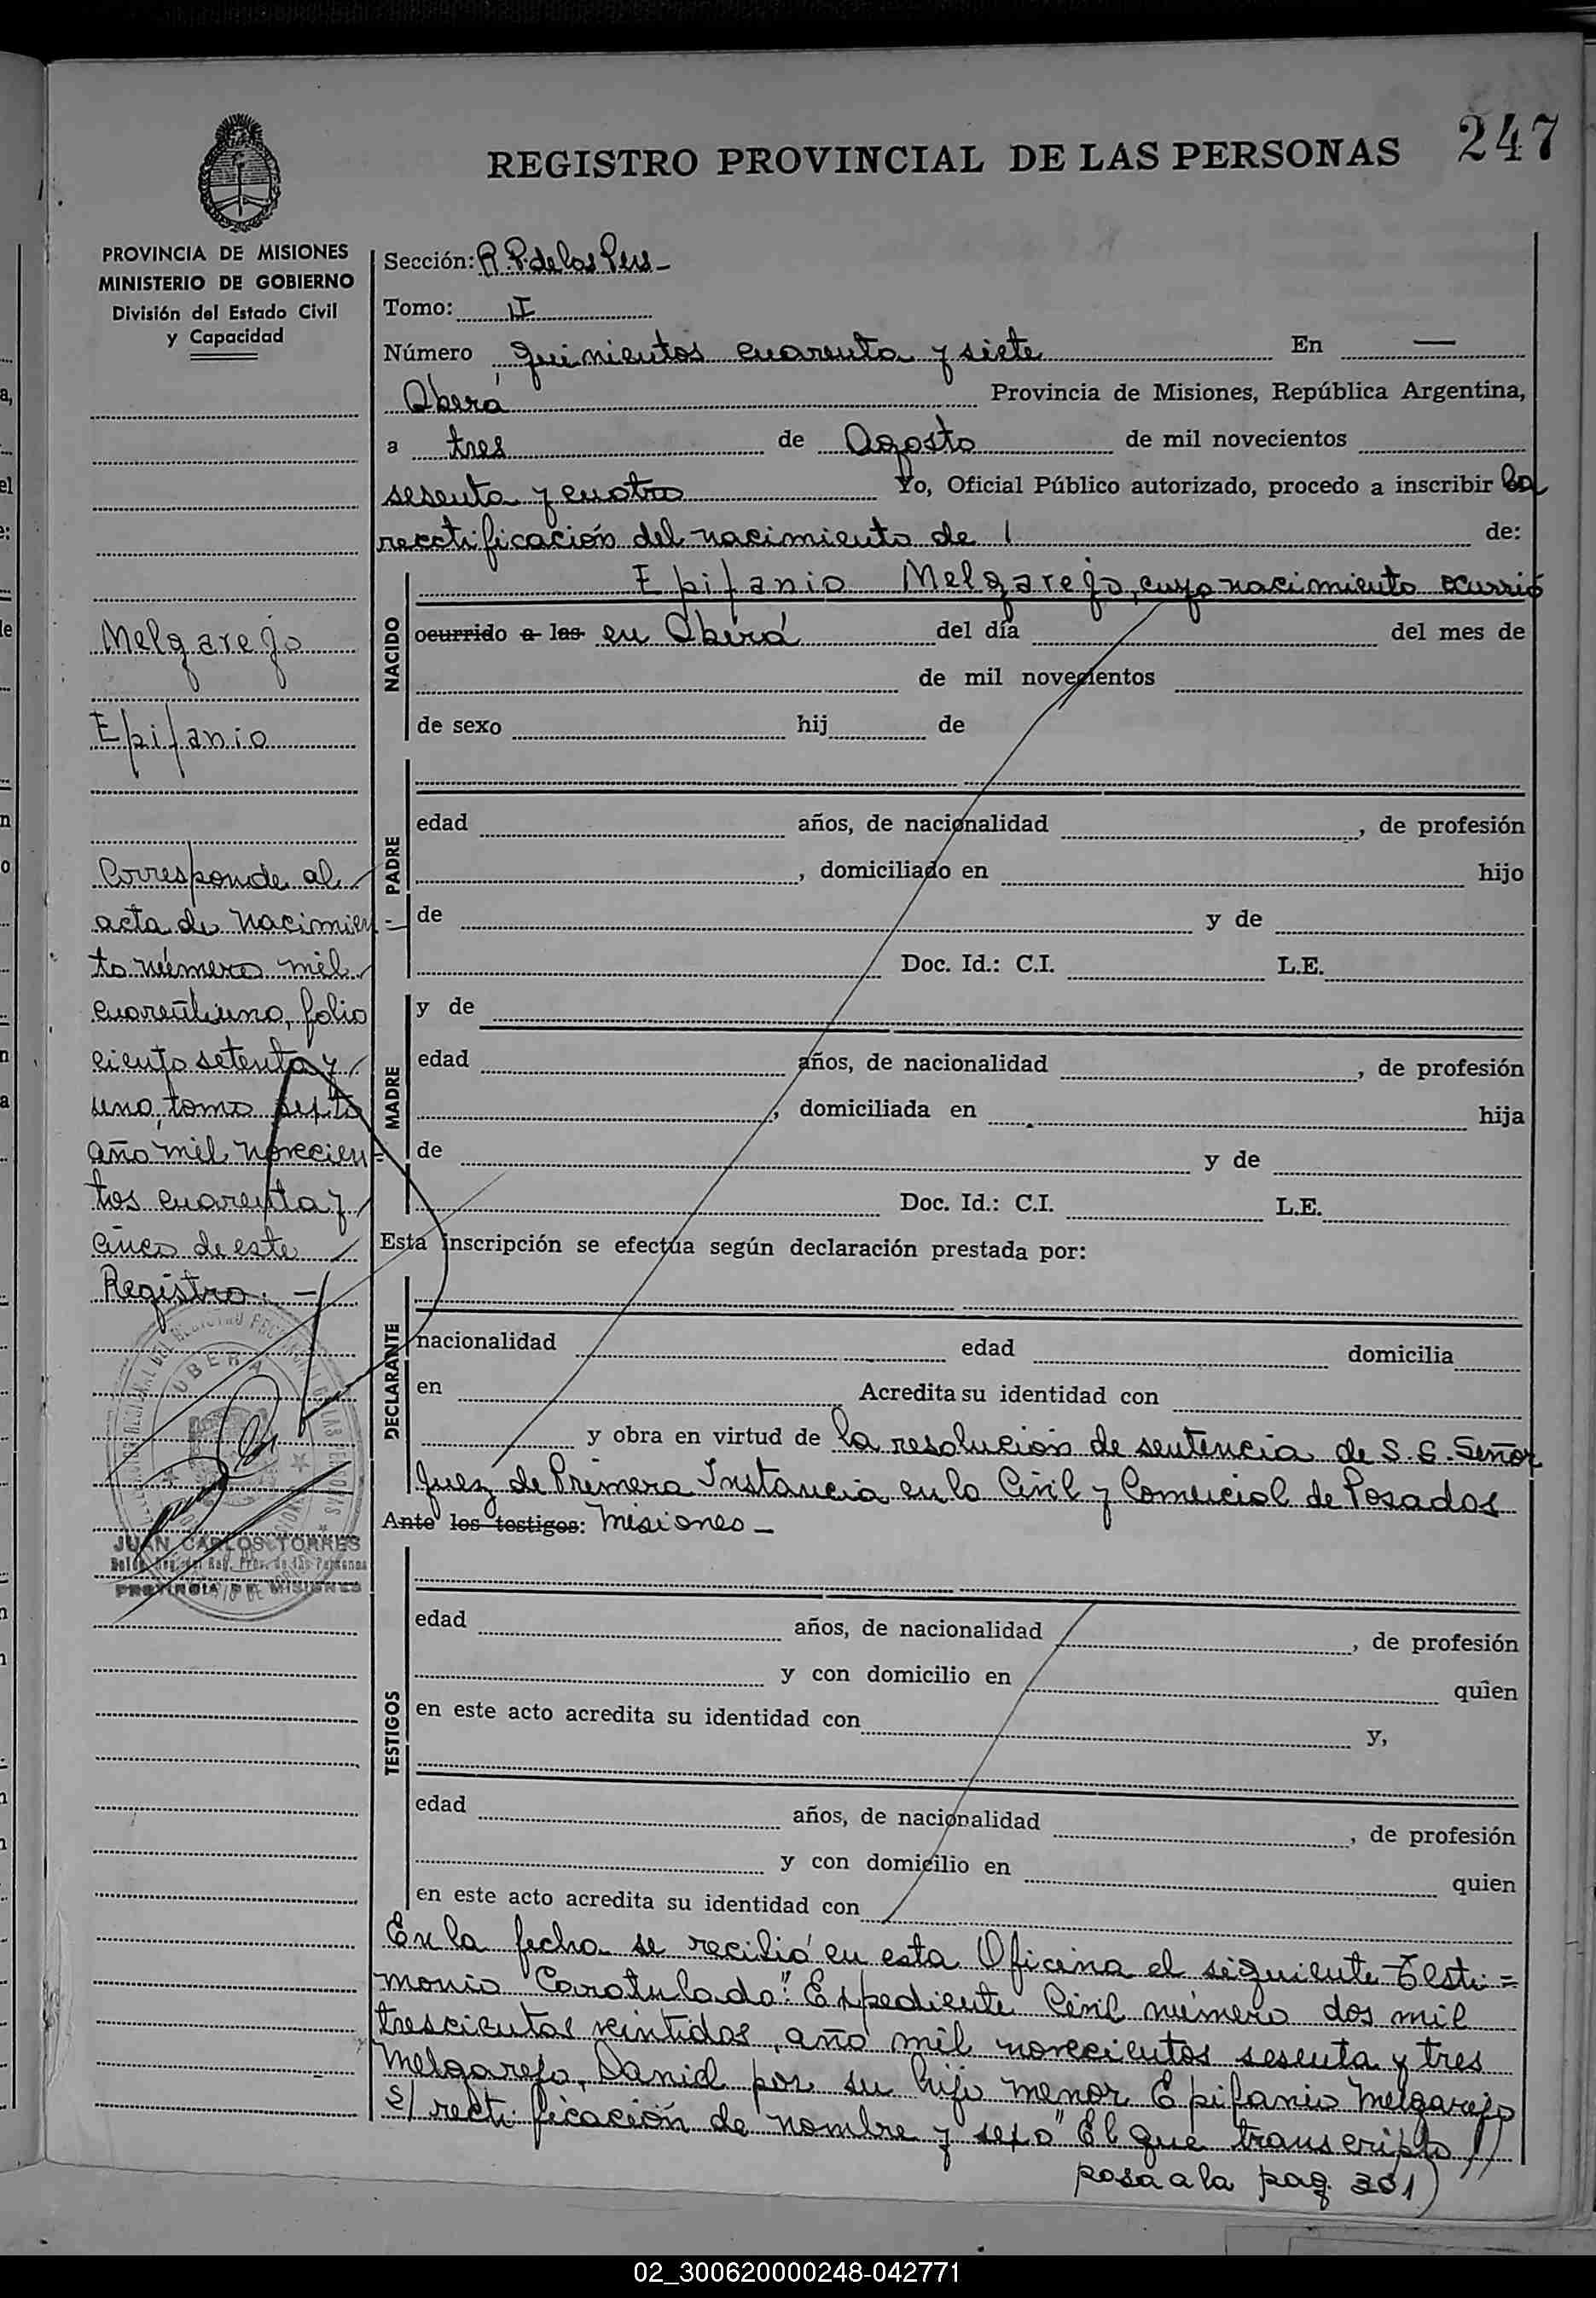 247
REGISTRO PROVINCIAL DE LAS PERSONAS
PROVINCIA DE MISIONES
MINISTERIO DE GOBIERNO
División del Estado Civil
y Capacidad
Melgarejo
Epifanio
Corresponde al
acta de nacimien-
to número mil
cuarentiuno, folio
ciento setenta y
uno, tomo septo
año mil novecien=
tos cuarenta y
cinco de este
Registro. -
OBERA
JUAN CARLOS TORRES
PROVINCIA DE MISIONES
Sección: R. P. de las Pers -
Tomo: II
Número quinientos cuarenta y siete En —
Oberá Provincia de Misiones, República Argentina,
a tres de Agosto de mil novecientos
sesenta y cuatro Yo, Oficial Público autorizado, procedo a inscribir la
rectificación del nacimiento de de:
NACIDO
Epifanio Melgarejo, cuyo nacimiento ocurrió
ocurrido a las en Oberá del día del mes de
de mil novecientos
de sexo hij de
PADRE
edad años, de nacionalidad , de profesión
, domiciliado en hijo
de y de
Doc. Id.: C.I. L.E.
MADRE
y de
edad años, de nacionalidad , de profesión
, domiciliada en hija
de y de
Doc. Id.: C.I. L.E.
Esta inscripción se efectúa según declaración prestada por:
DECLARANTE
nacionalidad edad domicilia
en Acredita su identidad con
y obra en virtud de la resolución de sentencia de S. S. Señor
Juez de Primera Instancia en lo Civil y Comercial de Posadas
Ante los testigos: Misiones -
TESTIGOS
edad años, de nacionalidad , de profesión
y con domicilio en quien
en este acto acredita su identidad con y,
edad años, de nacionalidad , de profesión
y con domicilio en quien
en este acto acredita su identidad con
En la fecha se recibió en esta Oficina el siguiente Testi=
monio Caratulado: "Expediente Civil número dos mil
trescientos veintidos, año mil novecientos sesenta y tres
Melgarejo, Daniel por su hijo menor Epifanio Melgarejo
S/ rectificación de nombre y sexo" El que transcripto //
pasa a la pag. 301)
02_300620000248-042771